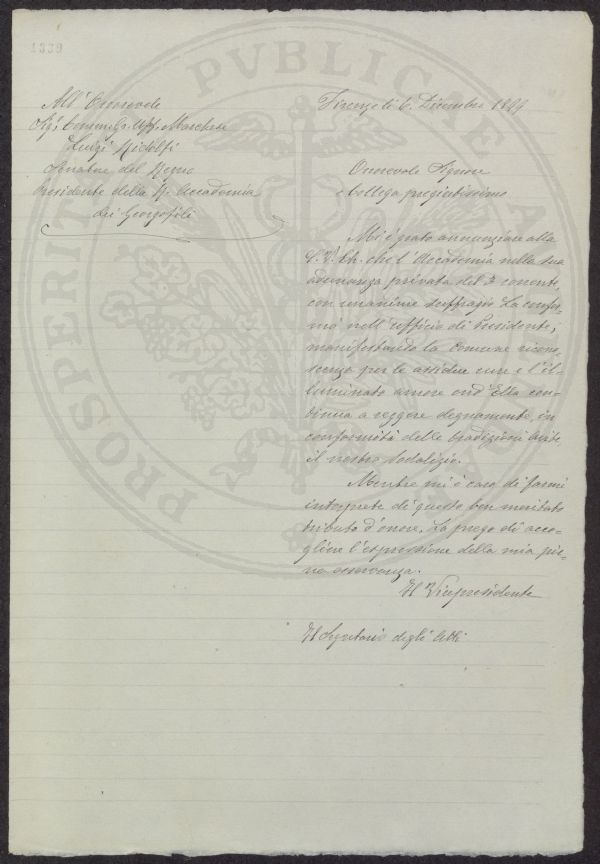 1339
PROSPERITATI PVBLICAE AVGENDAE
All' Onorevole
Sig. Comm. Gr. Uff. Marchese
Luigi Ridolfi
Senatore del Regno
Presidente della R. Accademia
dei Georgofili
Firenze li 6. Dicembre 1899
Onorevole Signore
e Collega pregiatissimo
Mi è grato annunziare alla
S. V. Ill. che l'Accademia nella sua
adunanza privata del 3 corrente,
con unanime suffragio La confer-
mò nell'ufficio di Presidente;
manifestando la comune ricono-
scenza per le assidue cure e l'il-
luminato amore ond'Ella con-
tinua a reggere degnamente, in
conformità delle tradizioni avite,
il nostro Sodalizio.
Mentre mi è caro di farmi
interprete di questo ben meritato
tributo d'onore, La prego di acco-
gliere l'espressione della mia pie-
na osservanza.
Il Vicepresidente
Il Segretario degli Atti